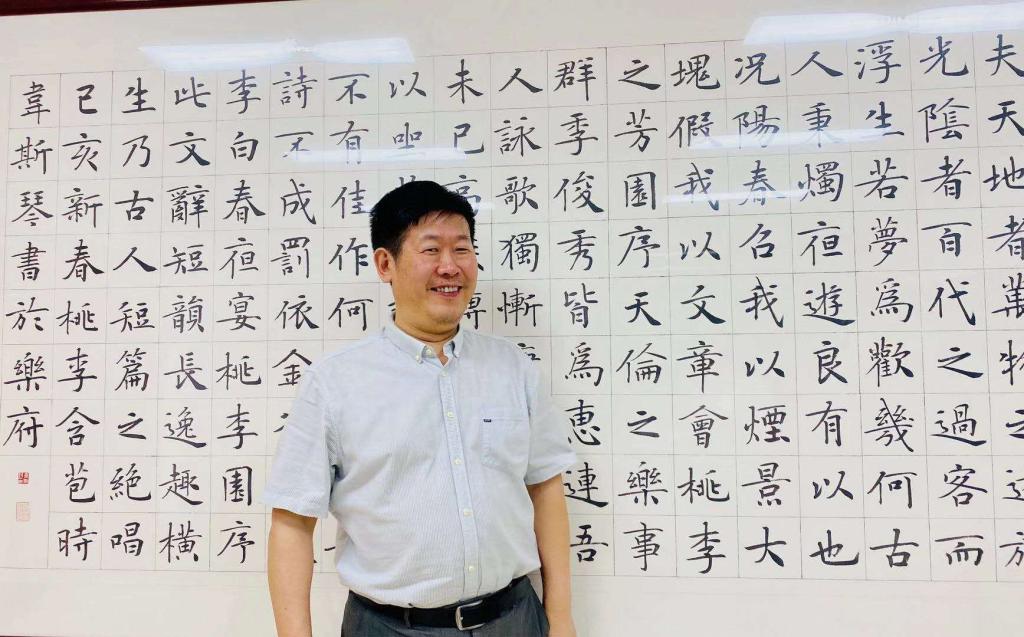 夫天地者萬物之逆旅
光陰者百代之過客而
浮生若夢爲歡幾何古
人秉燭夜遊良有以也
况陽春召我以煙景大
塊假我以文章會桃李
之芳園序天倫之樂事
群季俊秀皆爲惠連吾
人詠歌獨慚
未已高
以坐
不有佳作何
詩不成罰依金
李白春夜宴桃李園序
此文辭短韻長逸趣橫
生乃古人短篇之絕唱
己亥新春桃李含苞時
韋斯琴書於樂府